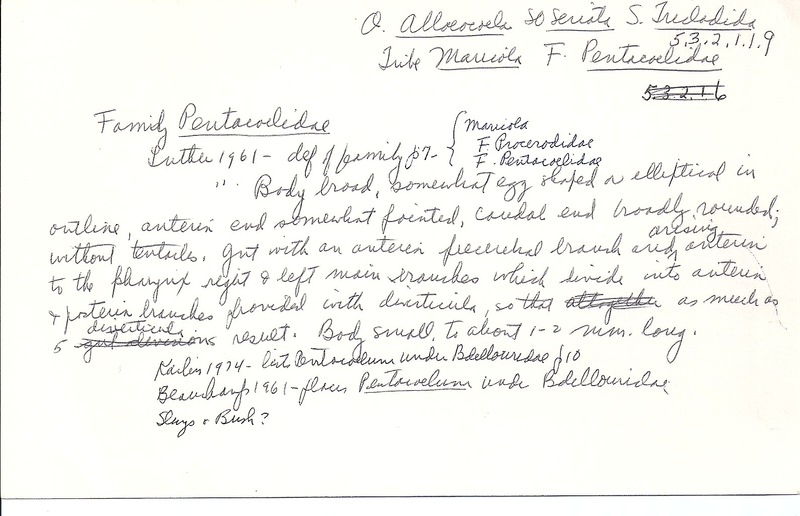 O. Alloeocoela SO Seriata S. Tricladida
5.3.2.1.1.9
Tribe Maricola F. Pentacoelidae
5.3.2.16
Family Pentacoelidae
Maricola
F. Procerodidae
F. Pentacoelidae
Luther 1961 - def of family p7-
" Body broad, somewhat egg shaped or elliptical in
outline, anterior end somewhat pointed, caudal end broadly rounded;
without tentacles. Gut with an anterior precerebral branch and arising anterior
to the pharynx right & left main branches which divide into anterior
& posterior branches provided with diverticula, so that altogether as much as
5 gut divisions diverticula result. Body small, to about 1-2 mm. long.
1974 - lists Pentacoelum under Bdellouridae p10
Beauchamp 1961 - places Pentacoelum under Bdellouridae
Sluys & Bush?